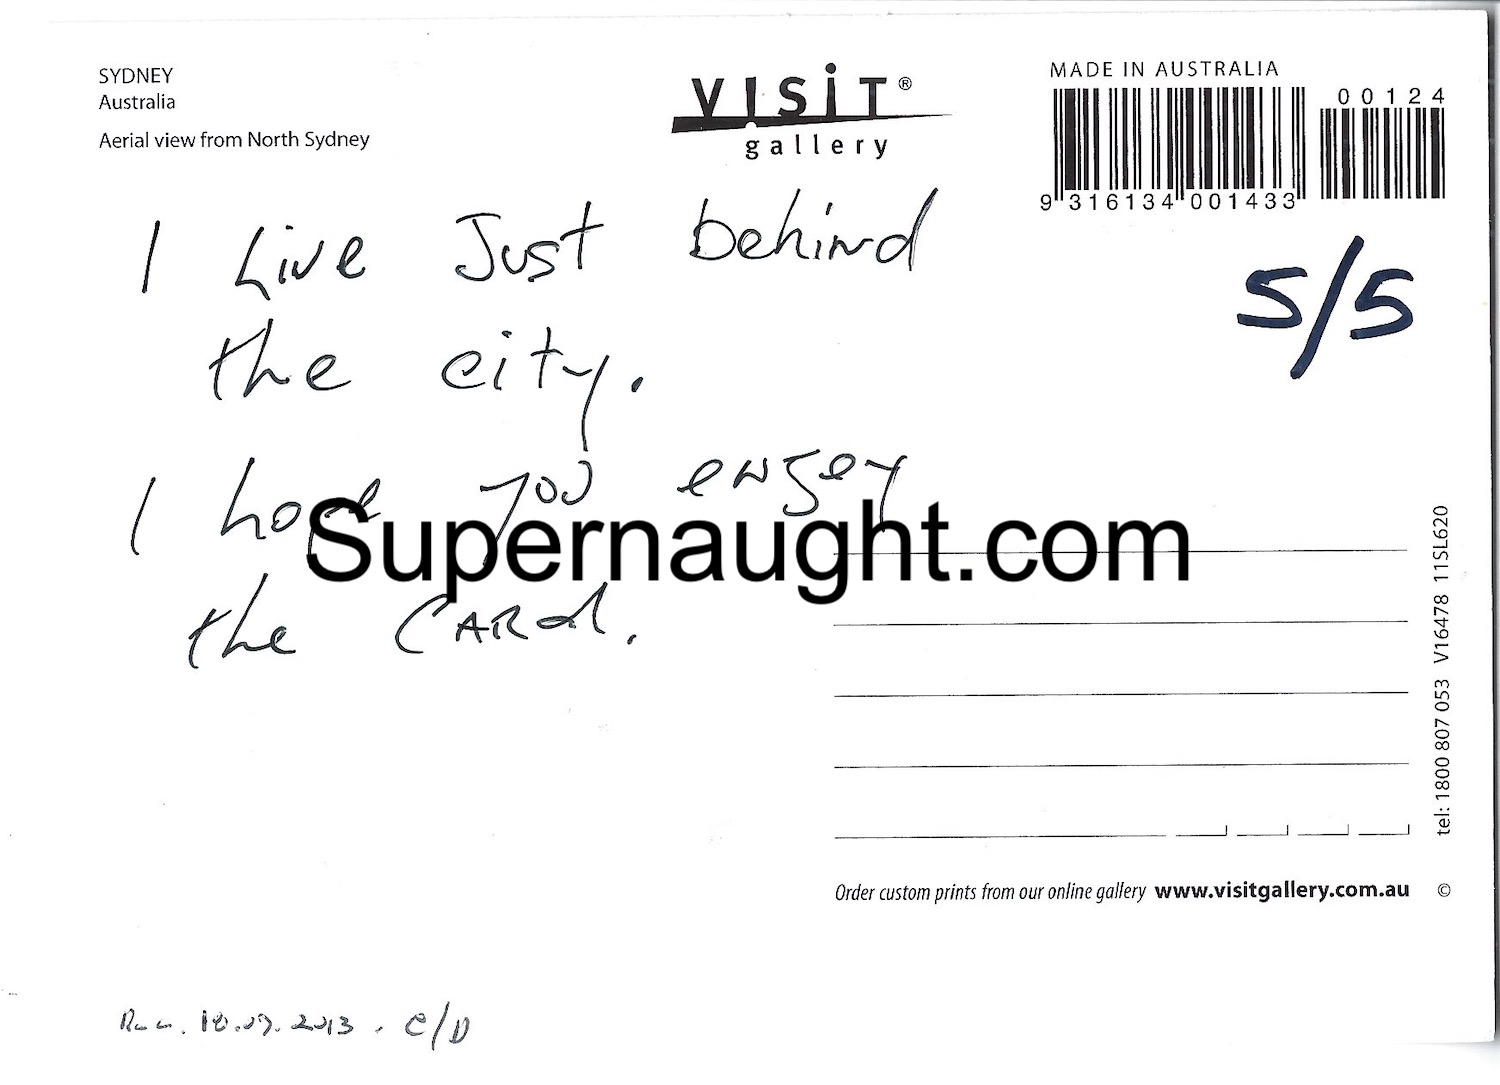 SYDNEY
Australia
Aerial view from North Sydney
VISIT®
gallery
MADE IN AUSTRALIA
00124
9 316134 001433
5/5
I Live Just behind
the city.
I hope you enjoy
the CARd.
Supernaught.com
tel: 1800 807 053 V16478 11SL620
Order custom prints from our online gallery www.visitgallery.com.au ©
2013. C/D